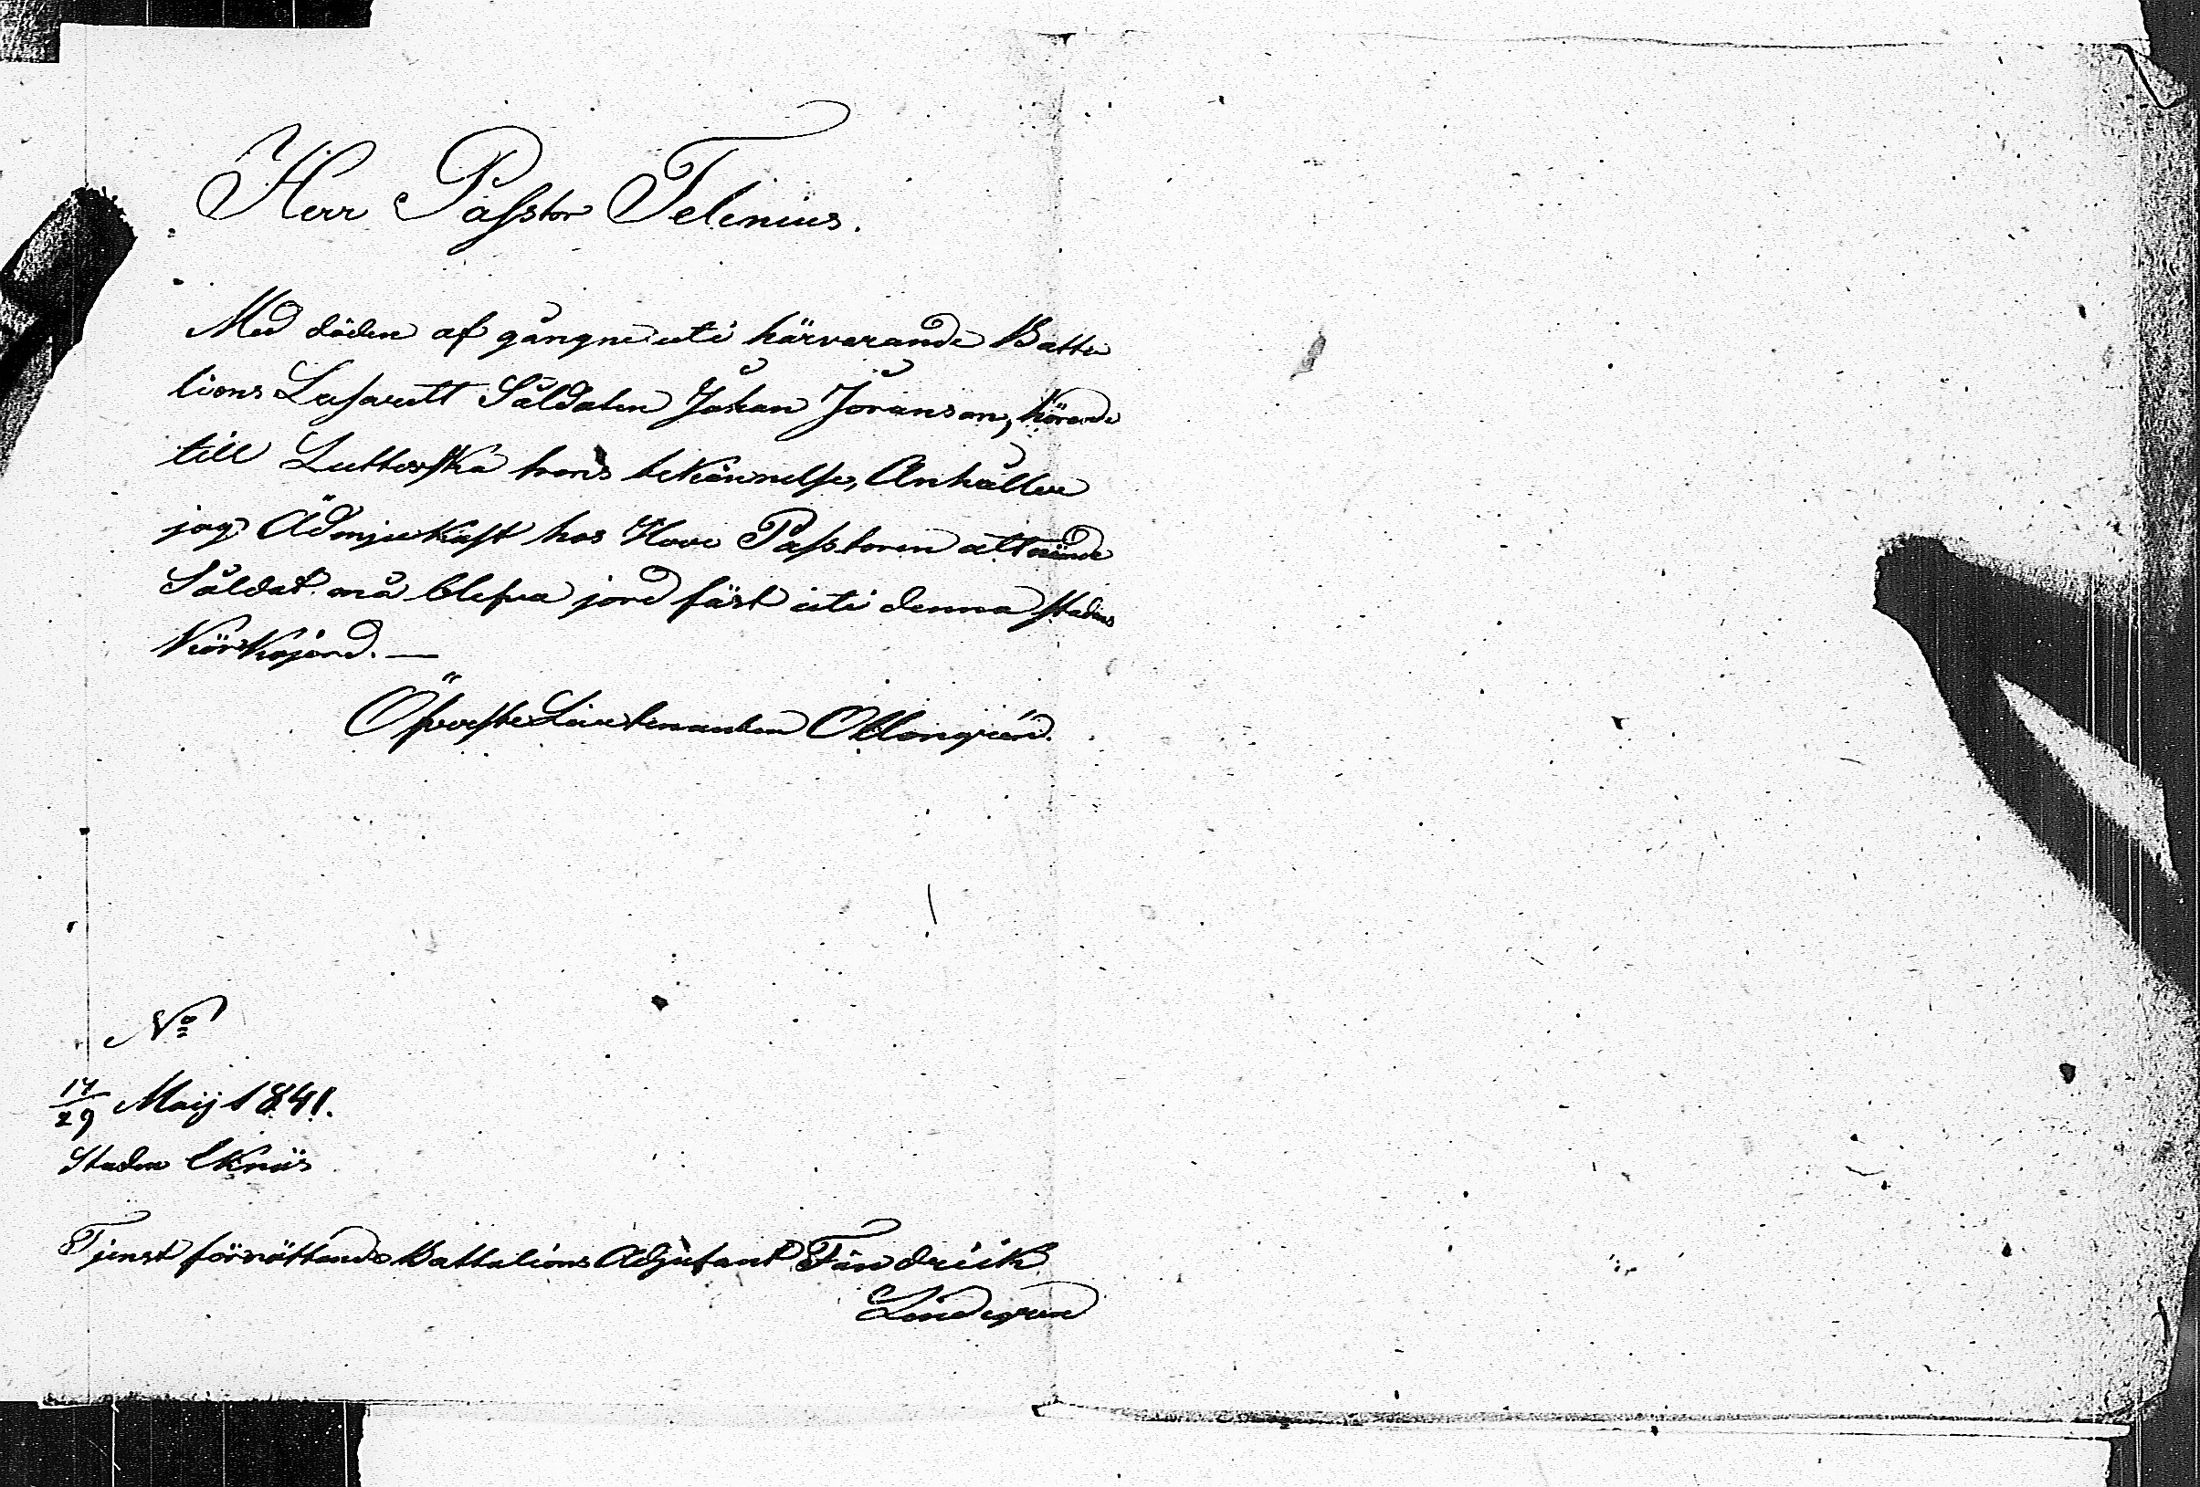 Herr Passtor Telenius.
Med döden af gångne uti härvarande Batta
lions Lasarett Såldaten Johan Jöranson, hörande
till Lutterska trons bekännelse, Anhåller
jag Ödmjukast hos Herr Passtoren att nämde
Såldat må blefva jord fäst uti denna stadens
Körkojord. —
Öfverste Leutenanten Ollongrén.
No
17/29 Maij 1841.
Staden Eknäs
Tjenst förrättande Battalions Adjutant Fändrick
Lindegren